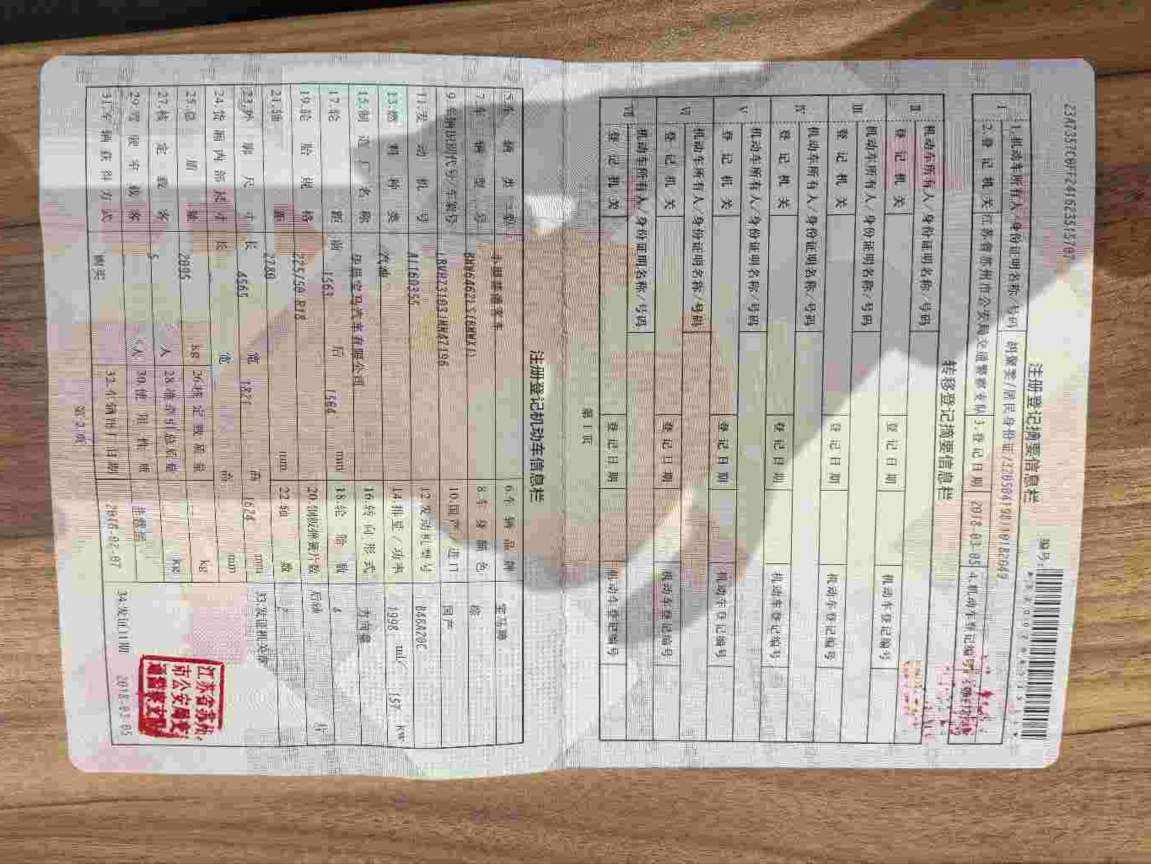 注册登记摘要信息栏
编号:
1.机动车所有人/身份证明名称/号码
2.登记机关 江苏省苏州市公安局交通警察支队 3.登记日期 2018-03-05 4.机动车登记编号
转移登记摘要信息栏
II 机动车所有人/身份证明名称/号码
登记机关 登记日期 机动车登记编号
III 机动车所有人/身份证明名称/号码
登记机关 登记日期 机动车登记编号
IV 机动车所有人/身份证明名称/号码
登记机关 登记日期 机动车登记编号
V 机动车所有人/身份证明名称/号码
登记机关 登记日期 机动车登记编号
VI 机动车所有人/身份证明名称/号码
登记机关 登记日期 机动车登记编号
VII 机动车所有人/身份证明名称/号码
登记机关 登记日期 机动车登记编号
第1页
注册登记机动车信息栏
5.车辆类型 小型普通客车 6.车辆品牌 宝马牌
7.车辆型号 BMW6462LS(BMWX1) 8.车身颜色 棕
9.车辆识别代号/车架号 10.国产/进口 国产
11.发动机号 12.发动机型号 B48A20C
13.燃料种类 汽油 14.排量/功率 1998 ml/ 157 kw
15.制造厂名称 华晨宝马汽车有限公司 16.转向形式 方向盘
17.轮距 前 1563 后 1564 mm 18.轮胎数 4
19.轮胎规格 225/50 R18 20.钢板弹簧片数 后轴 片
21.轴距 2780 mm 22.轴数 2
23.外廓尺寸 长 4565 宽 1821 高 1624 mm 33.发证机关章
24.货厢内部尺寸 长 宽 高 mm
25.总质量 2095 kg 26.核定载质量 kg
27.核定载客 5 人 28.准牵引总质量 kg
29.驾驶室载客 人 30.使用性质 非营运
31.车辆获得方式 购买 32.车辆出厂日期 2018-02-07 34.发证日期 2018-03-05
第2页
江苏省苏州
市公安局交
通警察支队